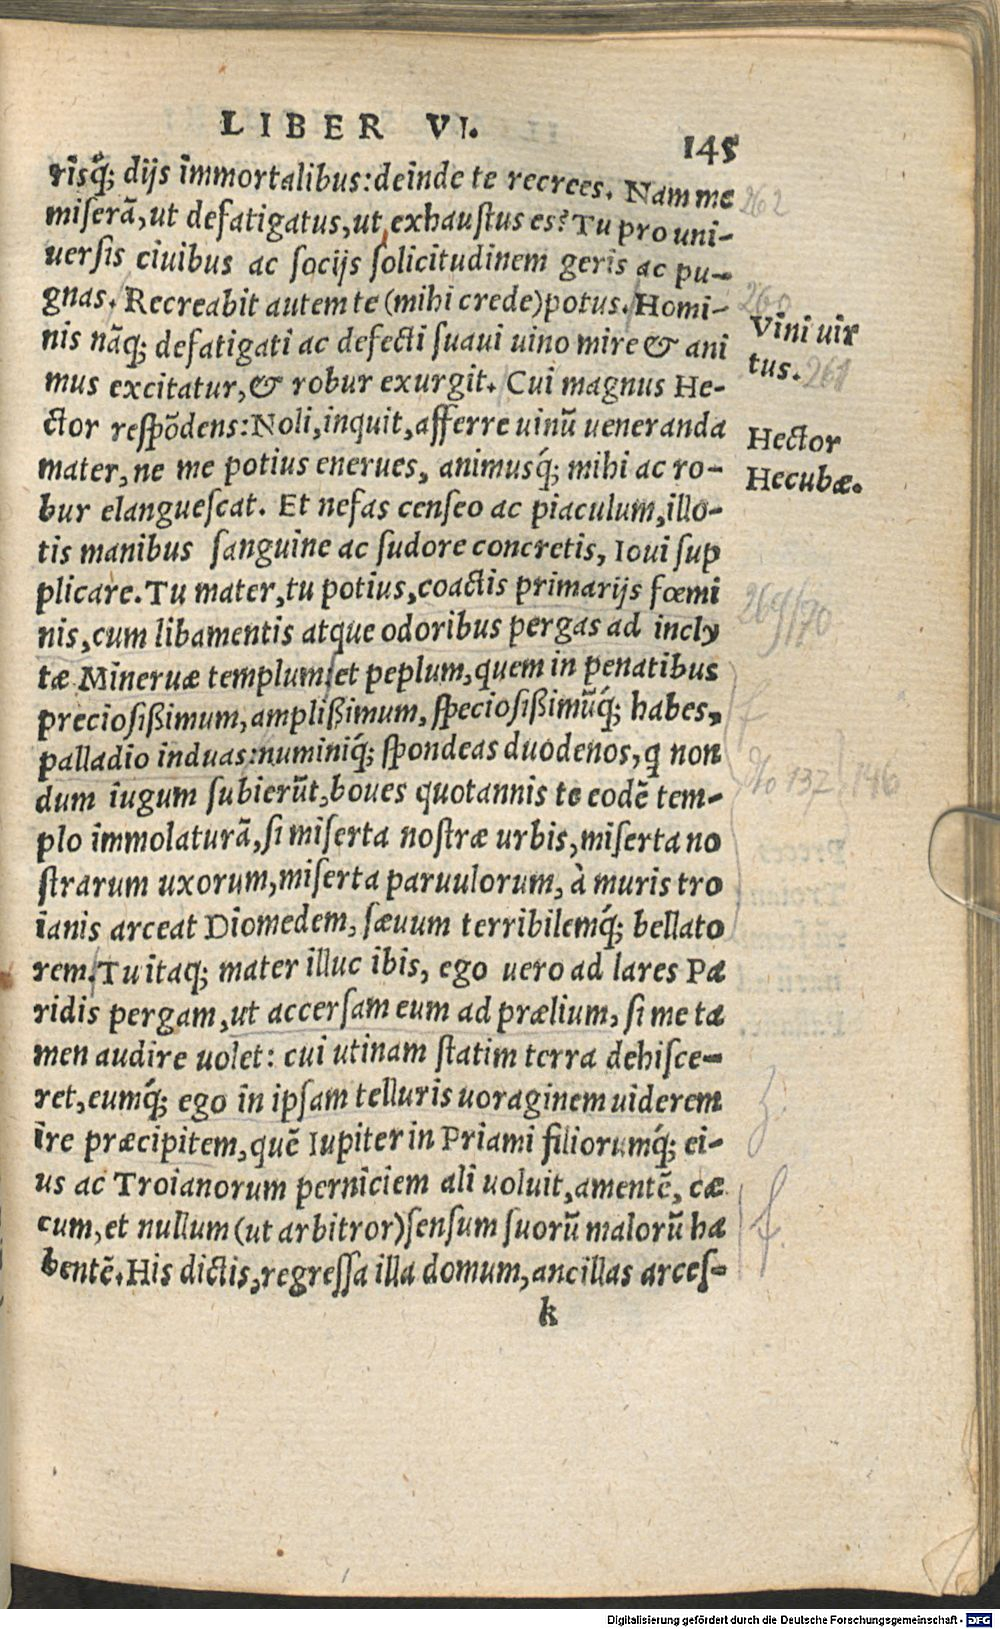 LIBER VI.
145
risq́; dijs immortalibus: deinde te recrees. Nam me
miserā, ut defatigatus, ut exhaustus es? Tu pro uni-
uersis ciuibus ac socijs solicitudinem geris ac pu-
gnas. Recreabit autem te (mihi crede) potus. Homi-
nis nāq; defatigati ac defecti suaui uino mire & ani
mus excitatur, & robur exurgit. Cui magnus He-
ctor respōdens: Noli, inquit, afferre uinū ueneranda
mater, ne me potius enerues, animusq́; mihi ac ro-
bur elanguescat. Et nefas censeo ac piaculum, illo-
tis manibus sanguine ac sudore concretis, Ioui sup
plicare. Tu mater, tu potius, coactis primarijs fœmi
nis, cum libamentis atque odoribus pergas ad incly
tæ Mineruæ templum: et peplum, quem in penatibus
preciosißimum, amplißimum, speciosißimūq́; habes,
palladio induas: numiniq́; spondeas duodenos, q non
dum iugum subierūt, boues quotannis te eodē tem-
plo immolaturā, si miserta nostræ urbis, miserta no
strarum uxorum, miserta paruulorum, à muris tro
ianis arceat Diomedem, sæuum terribilemq́; bellato
rem. Tu itaq; mater illuc ibis, ego uero ad lares Pa
ridis pergam, ut accersam eum ad prælium, si me ta
men audire uolet: cui utinam statim terra dehisce-
ret, eumq́; ego in ipsam telluris uoraginem uiderem
ire præcipitem, quē Iupiter in Priami filiorumq́; ei-
us ac Troianorum perniciem ali uoluit, amentē, cæ
cum, et nullum (ut arbitror) sensum suorū malorū ha
bentē. His dictis, regressa illa domum, ancillas arces-
k
262
260
Vini uir
tus. 261
Hector
Hecubæ.
269/70
No 137, 146
Digitalisierung gefördert durch die Deutsche Forschungsgemeinschaft - DFG